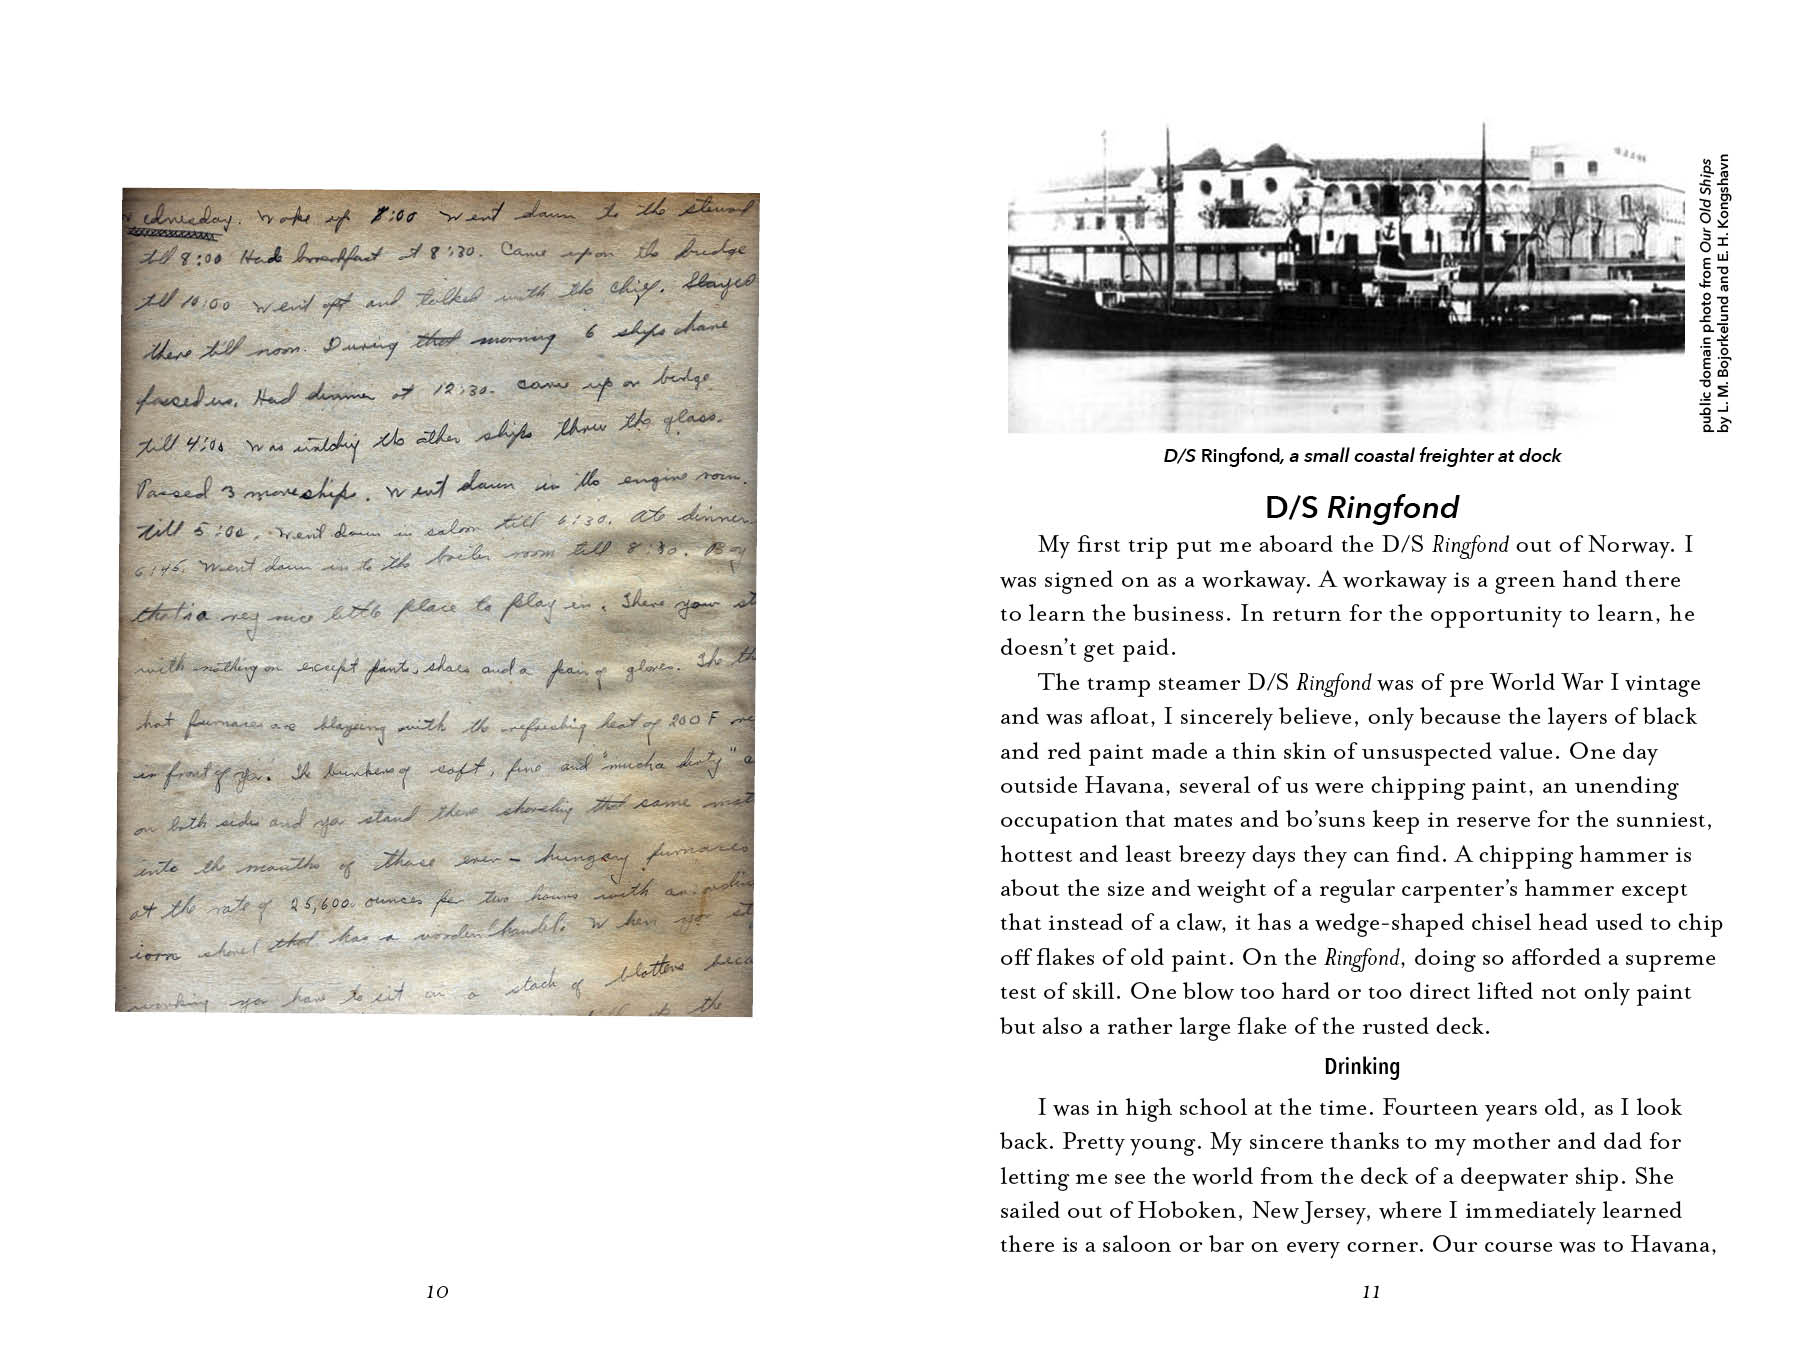 Wednesday. Woke up 8:00 Went down to the steward
till 8:00 Had breakfast at 8:30. Came up on the bridge
till 10:00 Went aft and talked with the chief. Stayed
there till noon. During that morning 6 ships have
passed us. Had dinner at 12:30. Came up on bridge
till 4:00 Was watching the other ships threw the glass.
Passed 3 more ships. Went down in the engine room.
till 5:00. Went down in saloon till 6:30. Ate dinner
6:45. Went down in to the boiler room till 8:30. Boy
that's a very nice little place to play in. There you
with nothing on except pants, shoes and a pair of gloves. The
hot furnaces are blazeing with the refreshing heat of 200 F
in front of you. The bunkers of soft, fine and "mucha dirty"
on both sides and you stand there shoveling that same
into the mouths of those ever-hungary furnaces
at the rate of 25,600 ounces per two hours with an
iorn shovel that has a wooden handel. When you
working you have to sit on a stack of blotters
up the
10
public domain photo from Our Old Ships
by L. M. Bojorkelund and E. H. Kongshavn
D/S Ringfond, a small coastal freighter at dock
D/S Ringfond
My first trip put me aboard the D/S Ringfond out of Norway. I
was signed on as a workaway. A workaway is a green hand there
to learn the business. In return for the opportunity to learn, he
doesn't get paid.
The tramp steamer D/S Ringfond was of pre World War I vintage
and was afloat, I sincerely believe, only because the layers of black
and red paint made a thin skin of unsuspected value. One day
outside Havana, several of us were chipping paint, an unending
occupation that mates and bo'suns keep in reserve for the sunniest,
hottest and least breezy days they can find. A chipping hammer is
about the size and weight of a regular carpenter's hammer except
that instead of a claw, it has a wedge-shaped chisel head used to chip
off flakes of old paint. On the Ringfond, doing so afforded a supreme
test of skill. One blow too hard or too direct lifted not only paint
but also a rather large flake of the rusted deck.
Drinking
I was in high school at the time. Fourteen years old, as I look
back. Pretty young. My sincere thanks to my mother and dad for
letting me see the world from the deck of a deepwater ship. She
sailed out of Hoboken, New Jersey, where I immediately learned
there is a saloon or bar on every corner. Our course was to Havana,
11